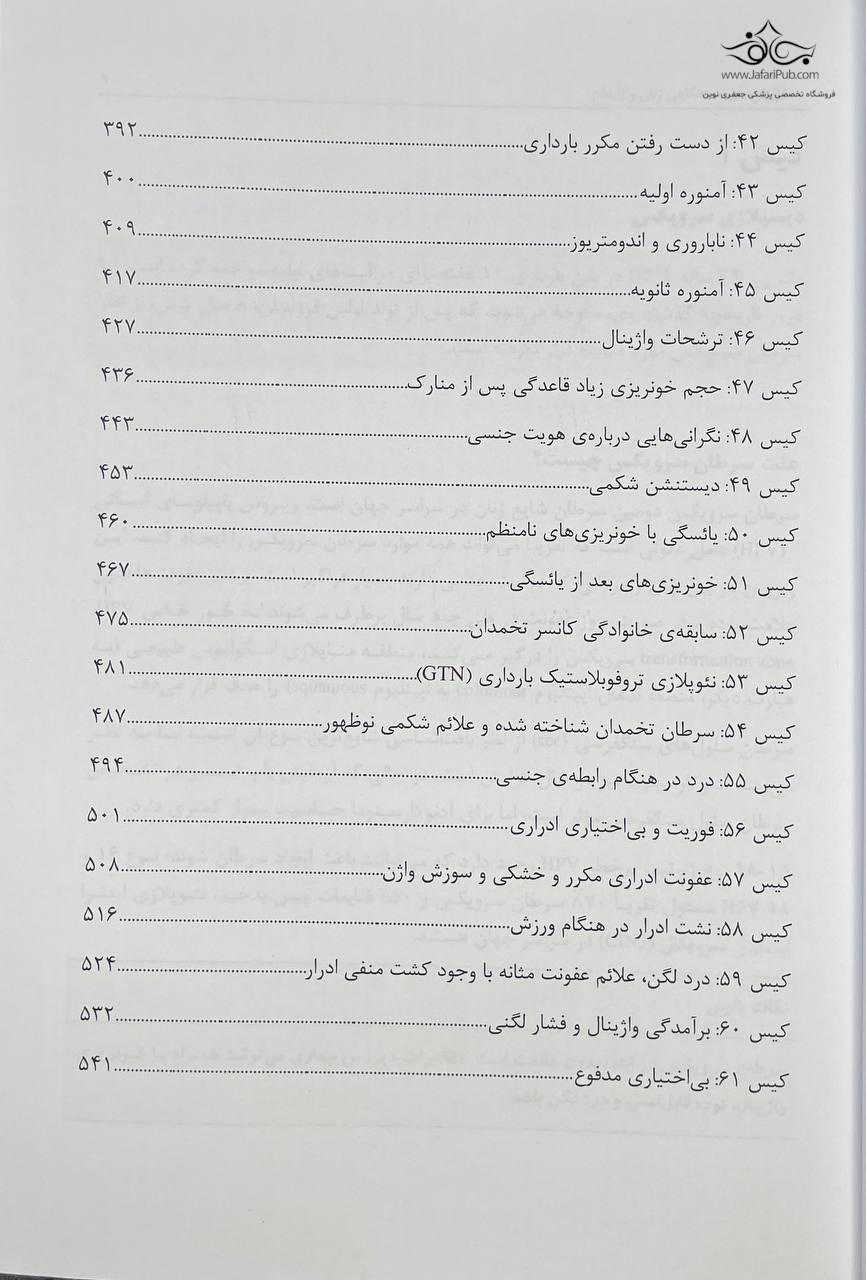 www.JafariPub.com
فروشگاه تخصصی پزشکی جعفری نوین
کیس ۴۲: از دست رفتن مکرر بارداری..........۳۹۲
کیس ۴۳: آمنوره اولیه..........۴۰۰
کیس ۴۴: ناباروری و اندومتریوز..........۴۰۹
کیس ۴۵: آمنوره ثانویه..........۴۱۷
کیس ۴۶: ترشحات واژینال..........۴۲۷
کیس ۴۷: حجم خونریزی زیاد قاعدگی پس از منارک..........۴۳۶
کیس ۴۸: نگرانی‌هایی درباره‌ی هویت جنسی..........۴۴۳
کیس ۴۹: دیستنشن شکمی..........۴۵۳
کیس ۵۰: یائسگی با خونریزی‌های نامنظم..........۴۶۰
کیس ۵۱: خونریزی‌های بعد از یائسگی..........۴۶۷
کیس ۵۲: سابقه‌ی خانوادگی کانسر تخمدان..........۴۷۵
کیس ۵۳: نئوپلازی تروفوبلاستیک بارداری (GTN)..........۴۸۱
کیس ۵۴: سرطان تخمدان شناخته شده و علائم شکمی نوظهور..........۴۸۷
کیس ۵۵: درد در هنگام رابطه‌ی جنسی..........۴۹۴
کیس ۵۶: فوریت و بی‌اختیاری ادراری..........۵۰۱
کیس ۵۷: عفونت ادراری مکرر و خشکی و سوزش واژن..........۵۰۸
کیس ۵۸: نشت ادرار در هنگام ورزش..........۵۱۶
کیس ۵۹: درد لگن، علائم عفونت مثانه با وجود کشت منفی ادرار..........۵۲۴
کیس ۶۰: برآمدگی واژینال و فشار لگنی..........۵۳۲
کیس ۶۱: بی‌اختیاری مدفوع..........۵۴۱